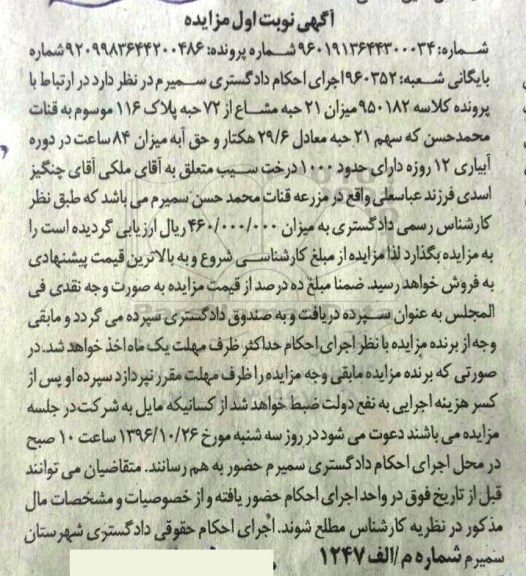 آگهی نوبت اول مزایده
شماره: ۹۶۰۱۹۱۳۶۴۴۳۰۰۰۳۴ شماره پرونده: ۹۲۰۹۹۸۳۶۴۴۲۰۰۴۸۶ شماره
بایگانی شعبه: ۹۶۰۳۵۲ اجرای احکام دادگستری سمیرم در نظر دارد در ارتباط با
پرونده کلاسه ۹۵۰۱۸۲ میزان ۲۱ حبه مشاع از ۷۲ حبه پلاک ۱۱۶ موسوم به قنات
محمدحسن که سهم ۲۱ حبه معادل ۲۹/۶ هکتار و حق آبه میزان ۸۴ ساعت در دوره
آبیاری ۱۲ روزه دارای حدود ۱۰۰۰ درخت سیب متعلق به آقای ملکی آقای چنگیز
اسدی فرزند عباسعلی واقع در مزرعه قنات محمد حسن سمیرم می باشد که طبق نظر
کارشناس رسمی دادگستری به میزان ۴۶۰/۰۰۰/۰۰۰ ریال ارزیابی گردیده است را
به مزایده بگذارد لذا مزایده از مبلغ کارشناسی شروع و به بالاترین قیمت پیشنهادی
به فروش خواهد رسید. ضمنا مبلغ ده درصد از قیمت مزایده به صورت وجه نقدی فی
المجلس به عنوان سپرده دریافت و به صندوق دادگستری سپرده می گردد و مابقی
وجه از برنده مزایده با نظر اجرای احکام حداکثر ظرف مهلت یک ماه اخذ خواهد شد. در
صورتی که برنده مزایده مابقی وجه مزایده را ظرف مهلت مقرر نپردازد سپرده او پس از
کسر هزینه اجرایی به نفع دولت ضبط خواهد شد از کسانیکه مایل به شرکت در جلسه
مزایده می باشند دعوت می شود در روز سه شنبه مورخ ۱۳۹۶/۱۰/۲۶ ساعت ۱۰ صبح
در محل اجرای احکام دادگستری سمیرم حضور به هم رسانند. متقاضیان می توانند
قبل از تاریخ فوق در واحد اجرای احکام حضور یافته و از خصوصیات و مشخصات مال
مذکور در نظریه کارشناس مطلع شوند. اجرای احکام حقوقی دادگستری شهرستان
سمیرم شماره م/الف ۱۲۴۷